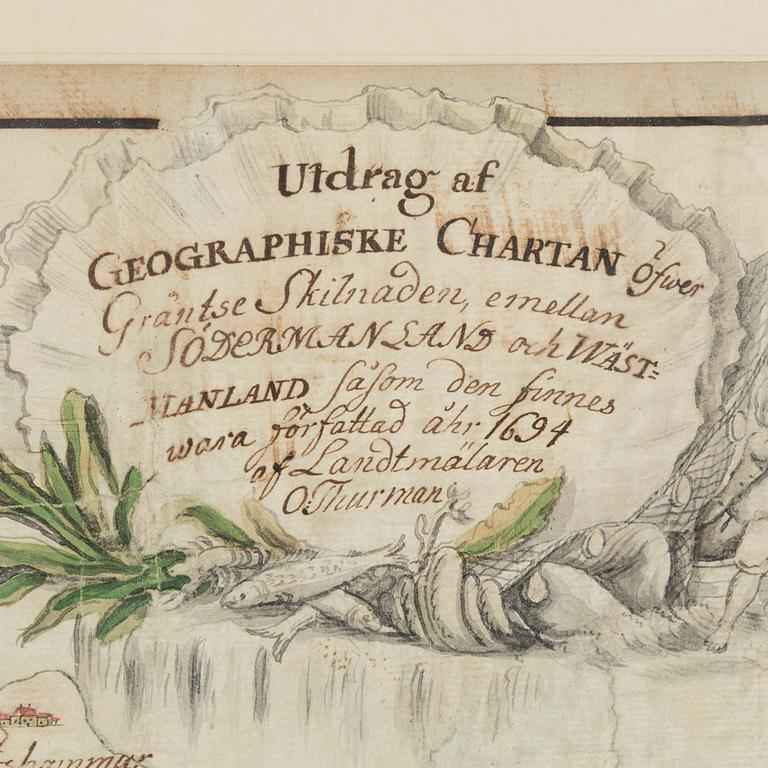 Utdrag af
GEOGRAPHISKE CHARTAN öfwer
Gräntse Skilnaden, emellan
SÖDERMANLAND och WÄST=
MANLAND såsom den finnes
wara författad åhr 1694
af Landtmälaren
O Thurman